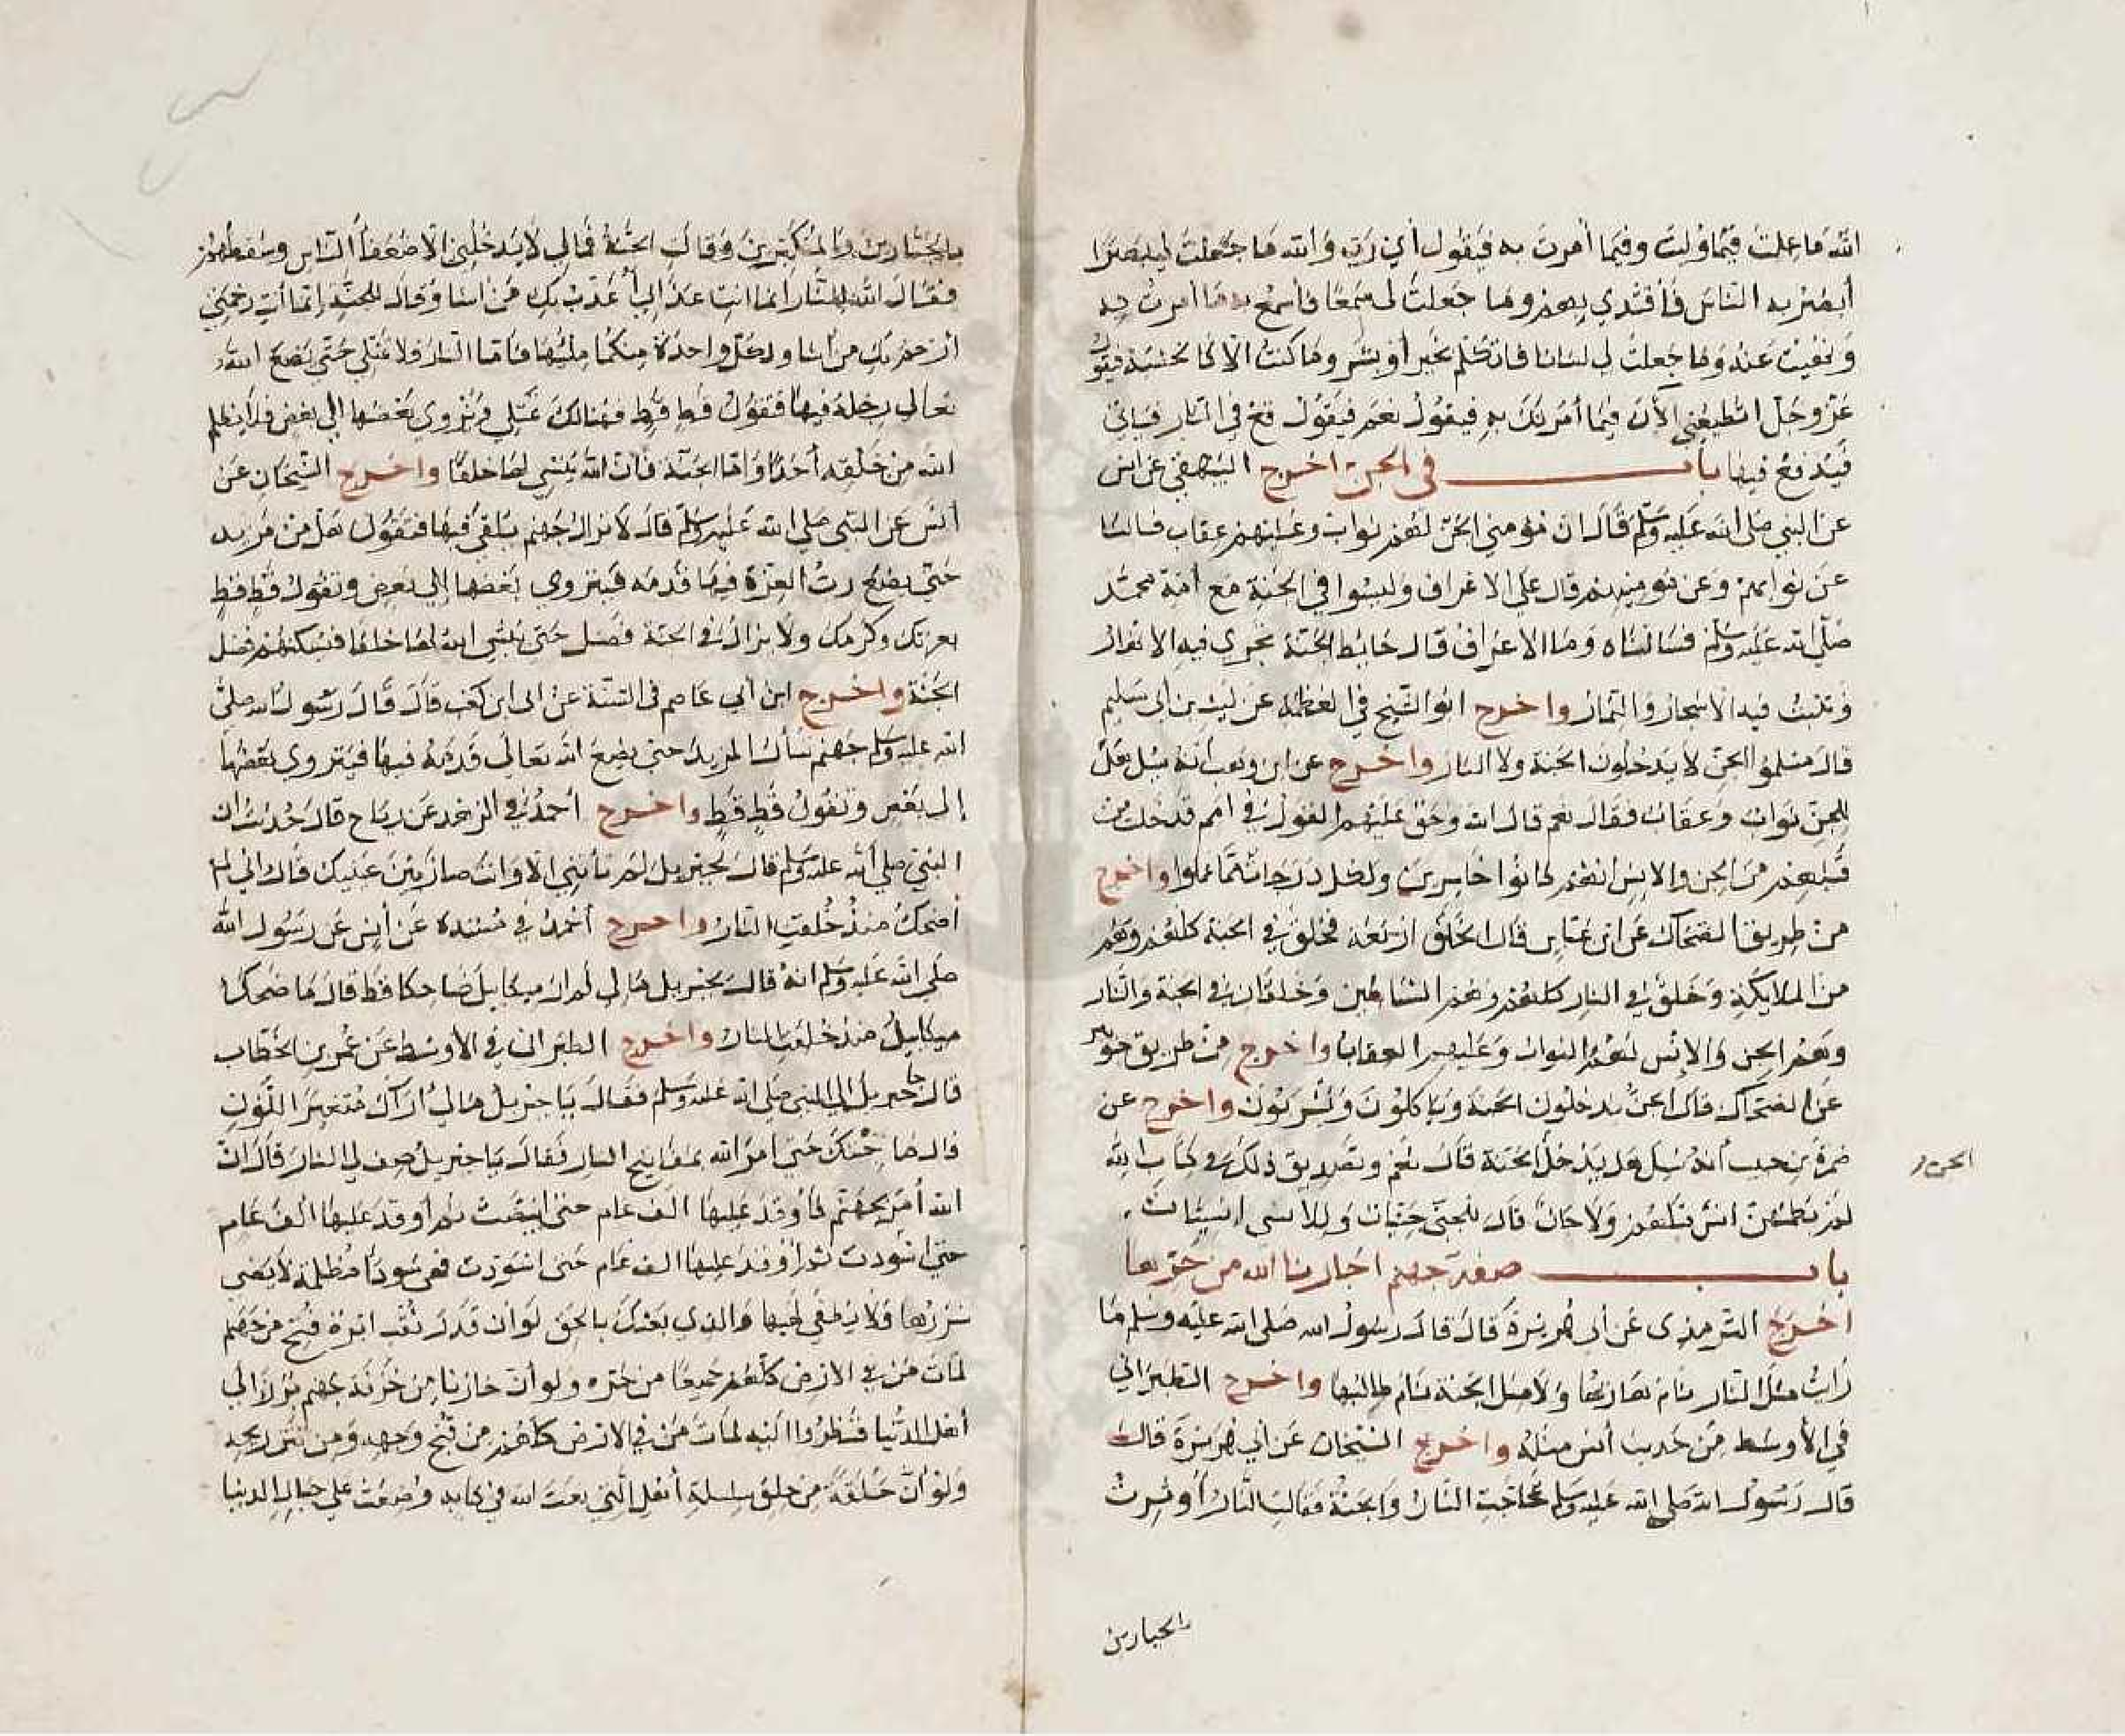 الله ما علمت فيما وليت وفيما أمرت به فيقول أي رب والله ما جعلت لي بصرا
أبصر به الناس فأقتدي بهم وما جعلت لي سمعا فأسمع به ما أمرت به
ونهيت عنه وما جعلت لي لسانا فأتكلم بخير أو بشر وما كنت الا كالخشبة فيقول
عز وجل اتطيعني الآن فيما أمرتك به فيقول نعم فيقول قع في النار فيأبى
فيدفع فيها باب في الجن اخرج البيهقي عن انس
عن النبي صلى الله عليه وسلم قال ان مؤمني الجن لهم ثواب وعليهم عقاب فسالنا
عن ثوابهم وعن مؤمنيهم قال على الاعراف وليسوا في الجنة مع أمة محمد
صلى الله عليه وسلم فسالناه وما الاعراف قال حائط الجنة تجري فيه الانهار
وتنبت فيه الاشجار والثمار واخرج ابو الشيخ في العظمة عن ليث بن ابي سليم
قال مسلموا الجن لا يدخلون الجنة ولا النار واخرج عن ابن وهب انه سئل هل
للجن ثواب وعقاب فقال نعم قال الله وحق عليهم القول في امم قد خلت من
قبلهم من الجن والانس انهم كانوا خاسرين ولكل درجات مما عملوا واخرج
من طريق الضحاك عن ابن عباس قال الخلق اربعة فخلق في الجنة كلهم وهم
من الملايكة وخلق في النار كلهم وهم الشياطين وخلقان في الجنة والنار
وهم الجن والإنس لهم الثواب وعليهم العقاب واخرج من طريق جويبر
عن الضحاك قال الجن يدخلون الجنة وياكلون ويشربون واخرج عن
ضمرة بن حبيب أنه سئل هل يدخل الجنة قال نعم وتصديق ذلك في كتاب الله
الجن
لم يطمثهن انس قبلهم ولا جان قال للجن جنيات وللانس انسيات
باب صفة جهنم اجارنا الله من حرها
اخرج الترمذي عن أبي هريرة قال قال رسول الله صلى الله عليه وسلم ما
رايت مثل النار نام هاربها ولا مثل الجنة نام طالبها واخرج الطبراني
في الأوسط من حديث أنس مثله واخرج الشيخان عن أبي هريرة قال
قال رسول الله صلى الله عليه وسلم تحاجت النار والجنة فقالت النار أوثرت
بالجبارين
بالجبارين والمتكبرين وقالت الجنة فمالي لا يدخلني الا ضعفاء الناس وسقطهم
فقال الله للنار انما انت عذابي أعذب بك من اشا وقال للجنة إنما أنت رحمتي
ارحم بك من أشا ولكل واحدة منكما ملئها فأما النار فلا تمتلي حتى يضع الله
تعالى رجله فيها فتقول قط قط فهنالك تمتلي ويزوي بعضها إلى بعض فلا يظلم
الله من خلقه أحدا وأما الجنة فان الله ينشي لها خلقا واخرج الشيخان عن
أنس عن النبي صلى الله عليه وسلم قال لا تزال جهنم يلقى فيها فتقول هل من مزيد
حتى يضع رب العزة فيها قدمه فينزوي بعضها إلى بعض وتقول قط قط
بعزتك وكرمك ولا يزال في الجنة فضل حتى ينشي الله لها خلقا فيسكنهم فضل
الجنة واخرج ابن أبي عاصم في السنة عن ابي ابن كعب قال قال رسول الله صلى
الله عليه وسلم جهنم تسأل المزيد حتى يضع الله تعالى قدمه فيها فينزوي بعضها
إلى بعض وتقول قط قط واخرج أحمد في الزهد عن رباح قال حدثت ان
النبي صلى الله عليه وسلم قال لجبريل لم تأتني الا وانت صار بين عينيك قال اني لم
أضحك منذ خلقت النار واخرج أحمد في مسنده عن أنس عن رسول الله
صلى الله عليه وسلم انه قال لجبريل مالي لم ار ميكايل ضاحكا قط قال ما ضحك
ميكايل منذ خلقت النار واخرج الطبراني في الأوسط عن عمر بن الخطاب
قال جا جبريل الى النبي صلى الله عليه وسلم فقال يا جبريل مالي أراك متغير اللون
قال ما جئتك حتى امر الله بمفاتيح النار فقال يا جبريل صف لي النار قال ان
الله أمر بجهنم فأوقد عليها الف عام حتى ابيضت ثم أوقد عليها ألف عام
حتى اسودت ثم أوقد عليها الف عام حتى اسودت فهي سوداء مظلمة لا يضي
شررها ولا يطفى لهبها والذي بعثك بالحق لو ان قدر ثقب ابرة فتح من جهنم
لمات من في الارض كلهم جميعا من حره ولو أن خازنا من خزنة جهنم برز الى
أهل الدنيا فنظروا اليه لمات من في الارض كلهم من قبح وجهه ومن نتن ريحه
ولو أن حلقة من حلق سلسلة أهل النار التي نعت الله في كتابه وضعت على جبال الدنيا